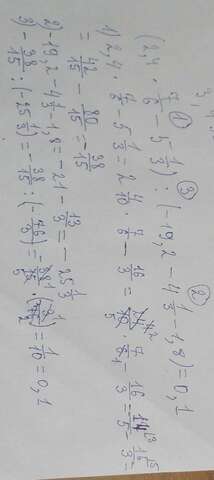 (2,4 · 7/6 - 5 1/3) : (-19,2 - 4 1/3 - 1,8) = 0,1
1) 2,4 · 7/6 - 5 1/3 = 2 4/10 · 7/6 - 16/3 = 24/10 · 7/6 - 16/3 = 14/5 - 16/3 =
= 42/15 - 80/15 = -38/15
2) -19,2 - 4 1/3 - 1,8 = -21 - 13/3 = -25 1/3
3) -38/15 : (-25 1/3) = -38/15 : (-76/3) = 1/10 = 0,1